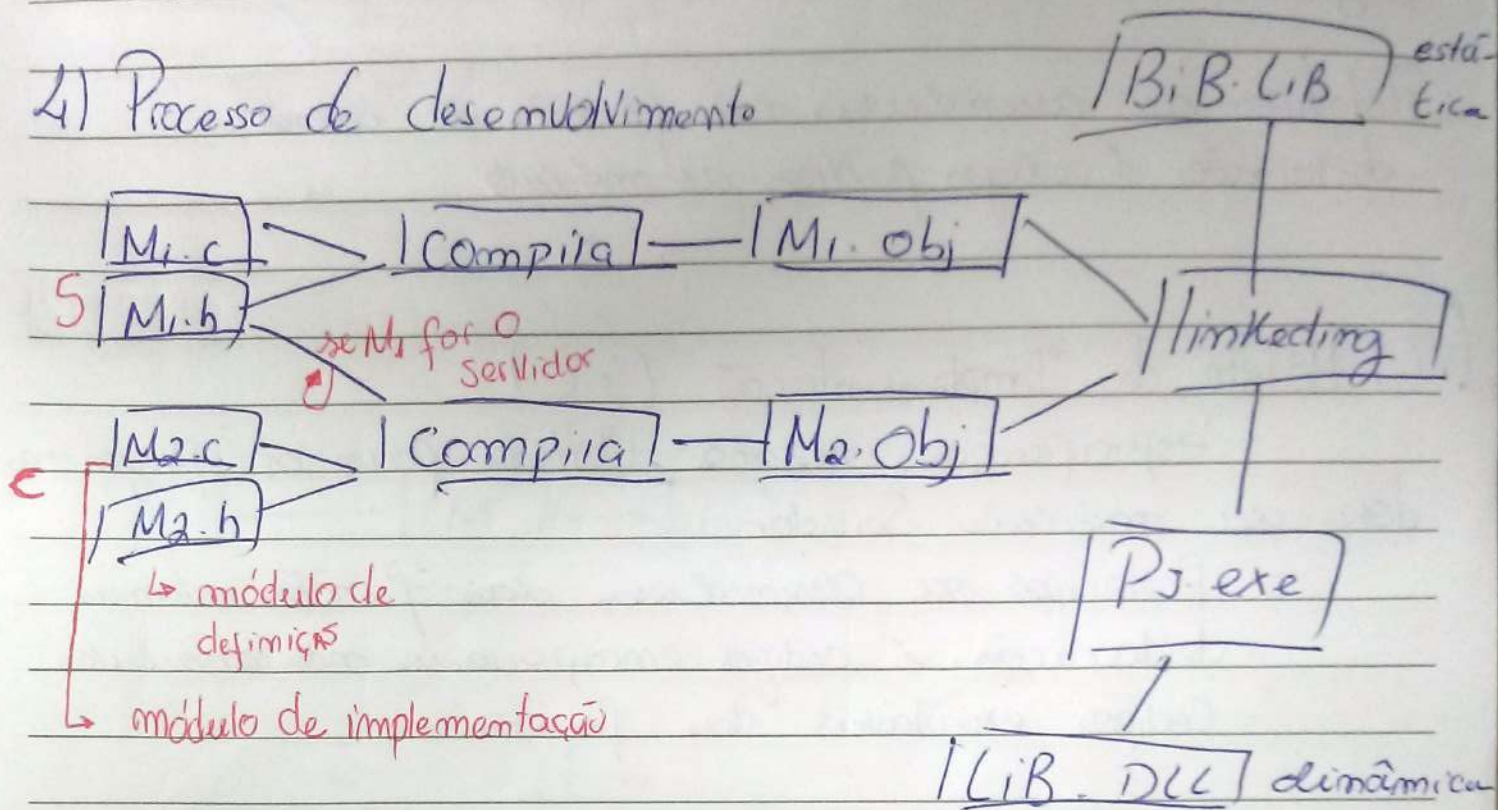 4) Processo de desenvolvimento
BiB.LiB
está-
tica
M1.c
Compila
M1.obj
S
M1.h
se M1 for o
servidor
linkeding
M2.c
Compila
M2.obj
C
M2.h
↳ módulo de
definição
PJ.exe
↳ módulo de implementação
LiB.DLL
dinâmica